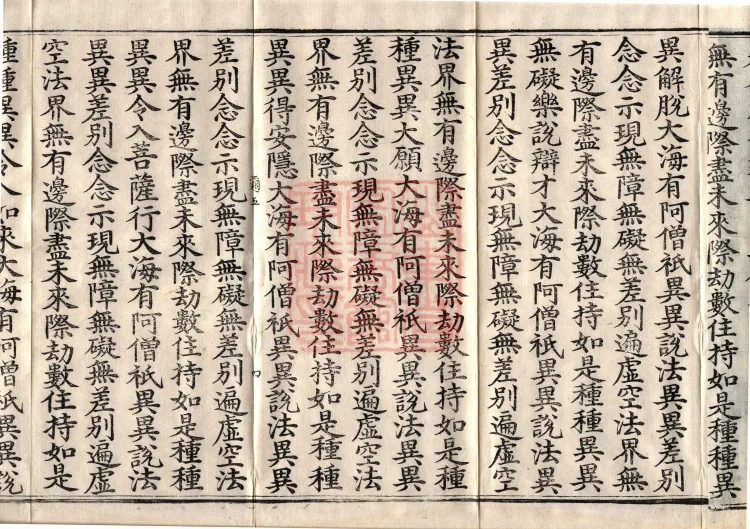 無有邊際盡未來際劫數住持如是種種異
異解脫大海有阿僧祇異異說法異異差別
念念示現無障無礙無差別遍虛空法界無
有邊際盡未來際劫數住持如是種種異異
無礙樂說辯才大海有阿僧祇異異說法異
異差別念念示現無障無礙無差別遍虛空
法界無有邊際盡未來際劫數住持如是種
種異異大願大海有阿僧祇異異說法異異
差別念念示現無障無礙無差別遍虛空法
界無有邊際盡未來際劫數住持如是種種
異異得安隱大海有阿僧祇異異說法異異
差別念念示現無障無礙無差別遍虛空法
界無有邊際盡未來際劫數住持如是種種
異異令入菩薩行大海有阿僧祇異異說法
異異差別念念示現無障無礙無差別遍虛
空法界無有邊際盡未來際劫數住持如是
種種異異令入如來大海有阿僧祇異異說